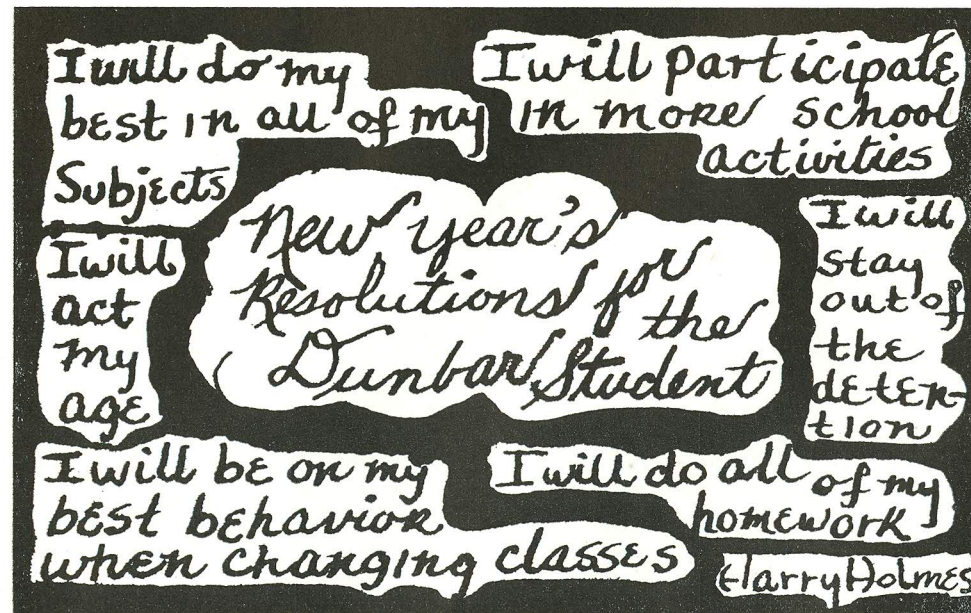 I will do my
best in all of my
Subjects
I will participate
in more school
activities
New Year's
Resolutions for
the
Dunbar Student
I will
act
my
age
I will
stay
out of
the
deten-
tion
I will be on my
best behavior
when changing classes
I will do all
of my
homework
Harry Holmes